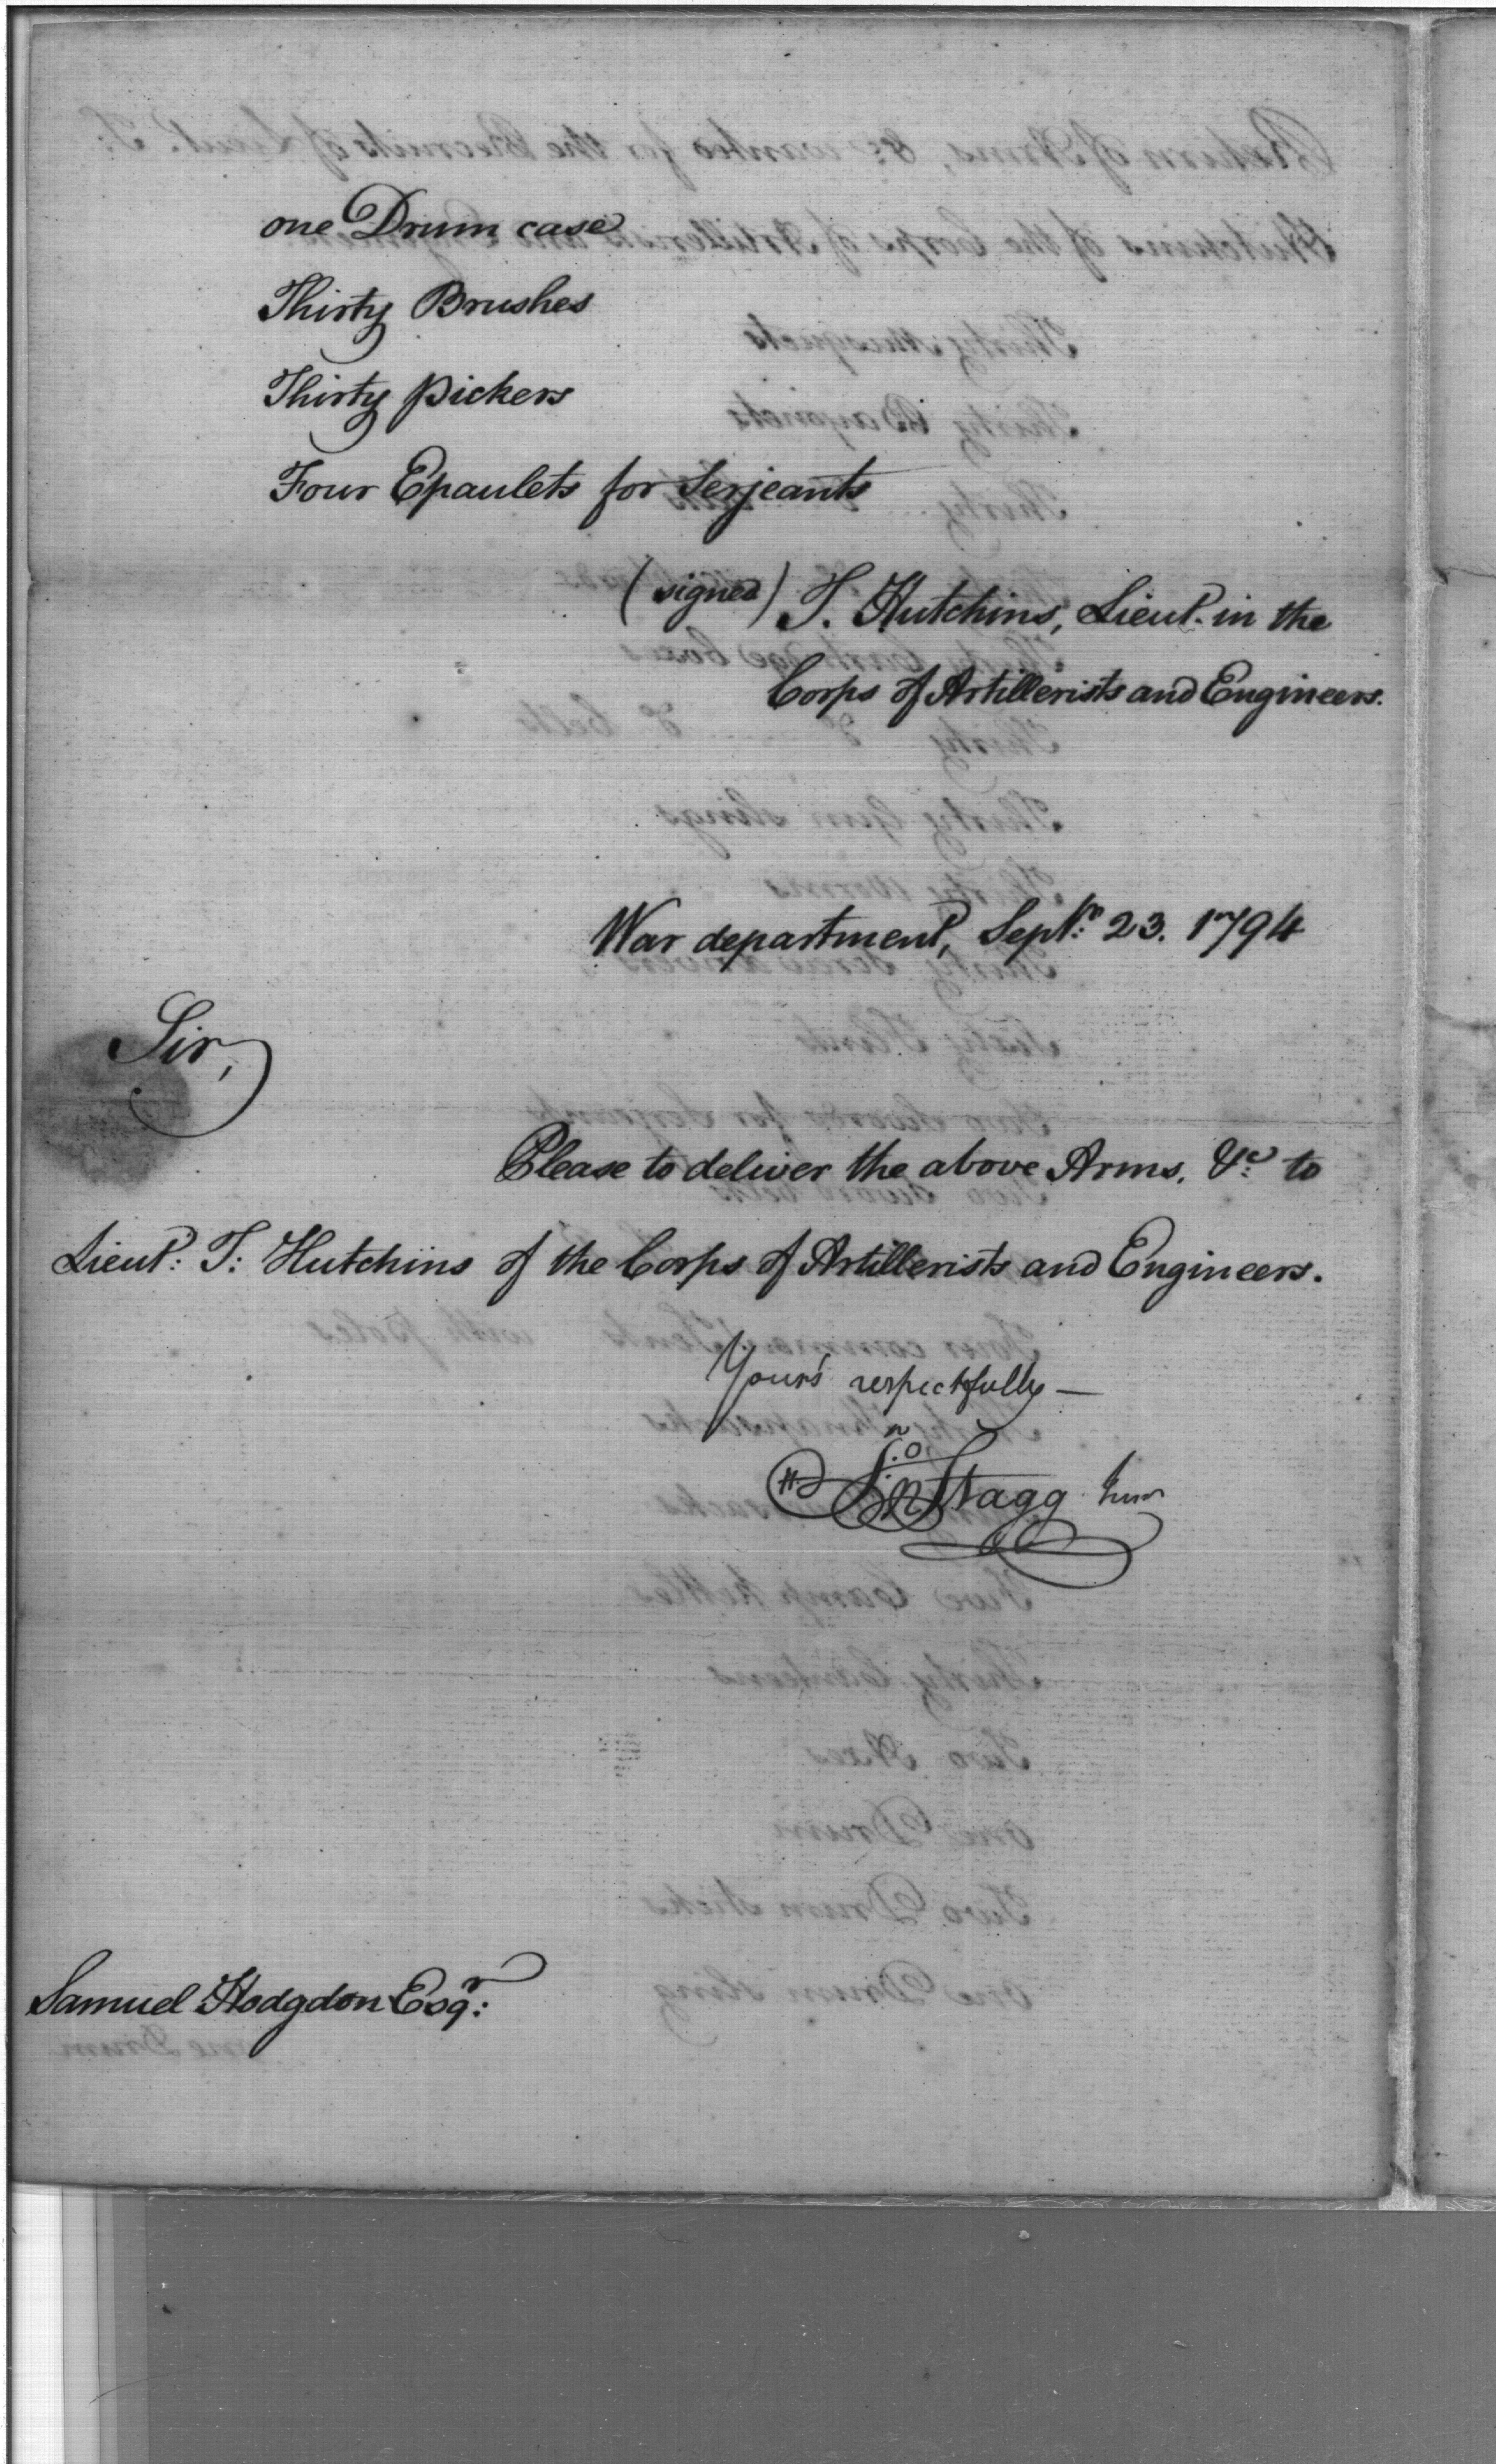 one Drum case
Thirty Brushes
Thirty pickers
Four Epaulets for Serjeants
(signed) T. Hutchins, Lieut. in the
Corps of Artillerists and Engineers.
War department, Sept.r 23. 1794
Sir,
Please to deliver the above Arms, &c to
Lieut: T: Hutchins of the Corps of Artillerists and Engineers.
Your's respectfully —
Jno Stagg Junr
Samuel Hodgdon Esqr: